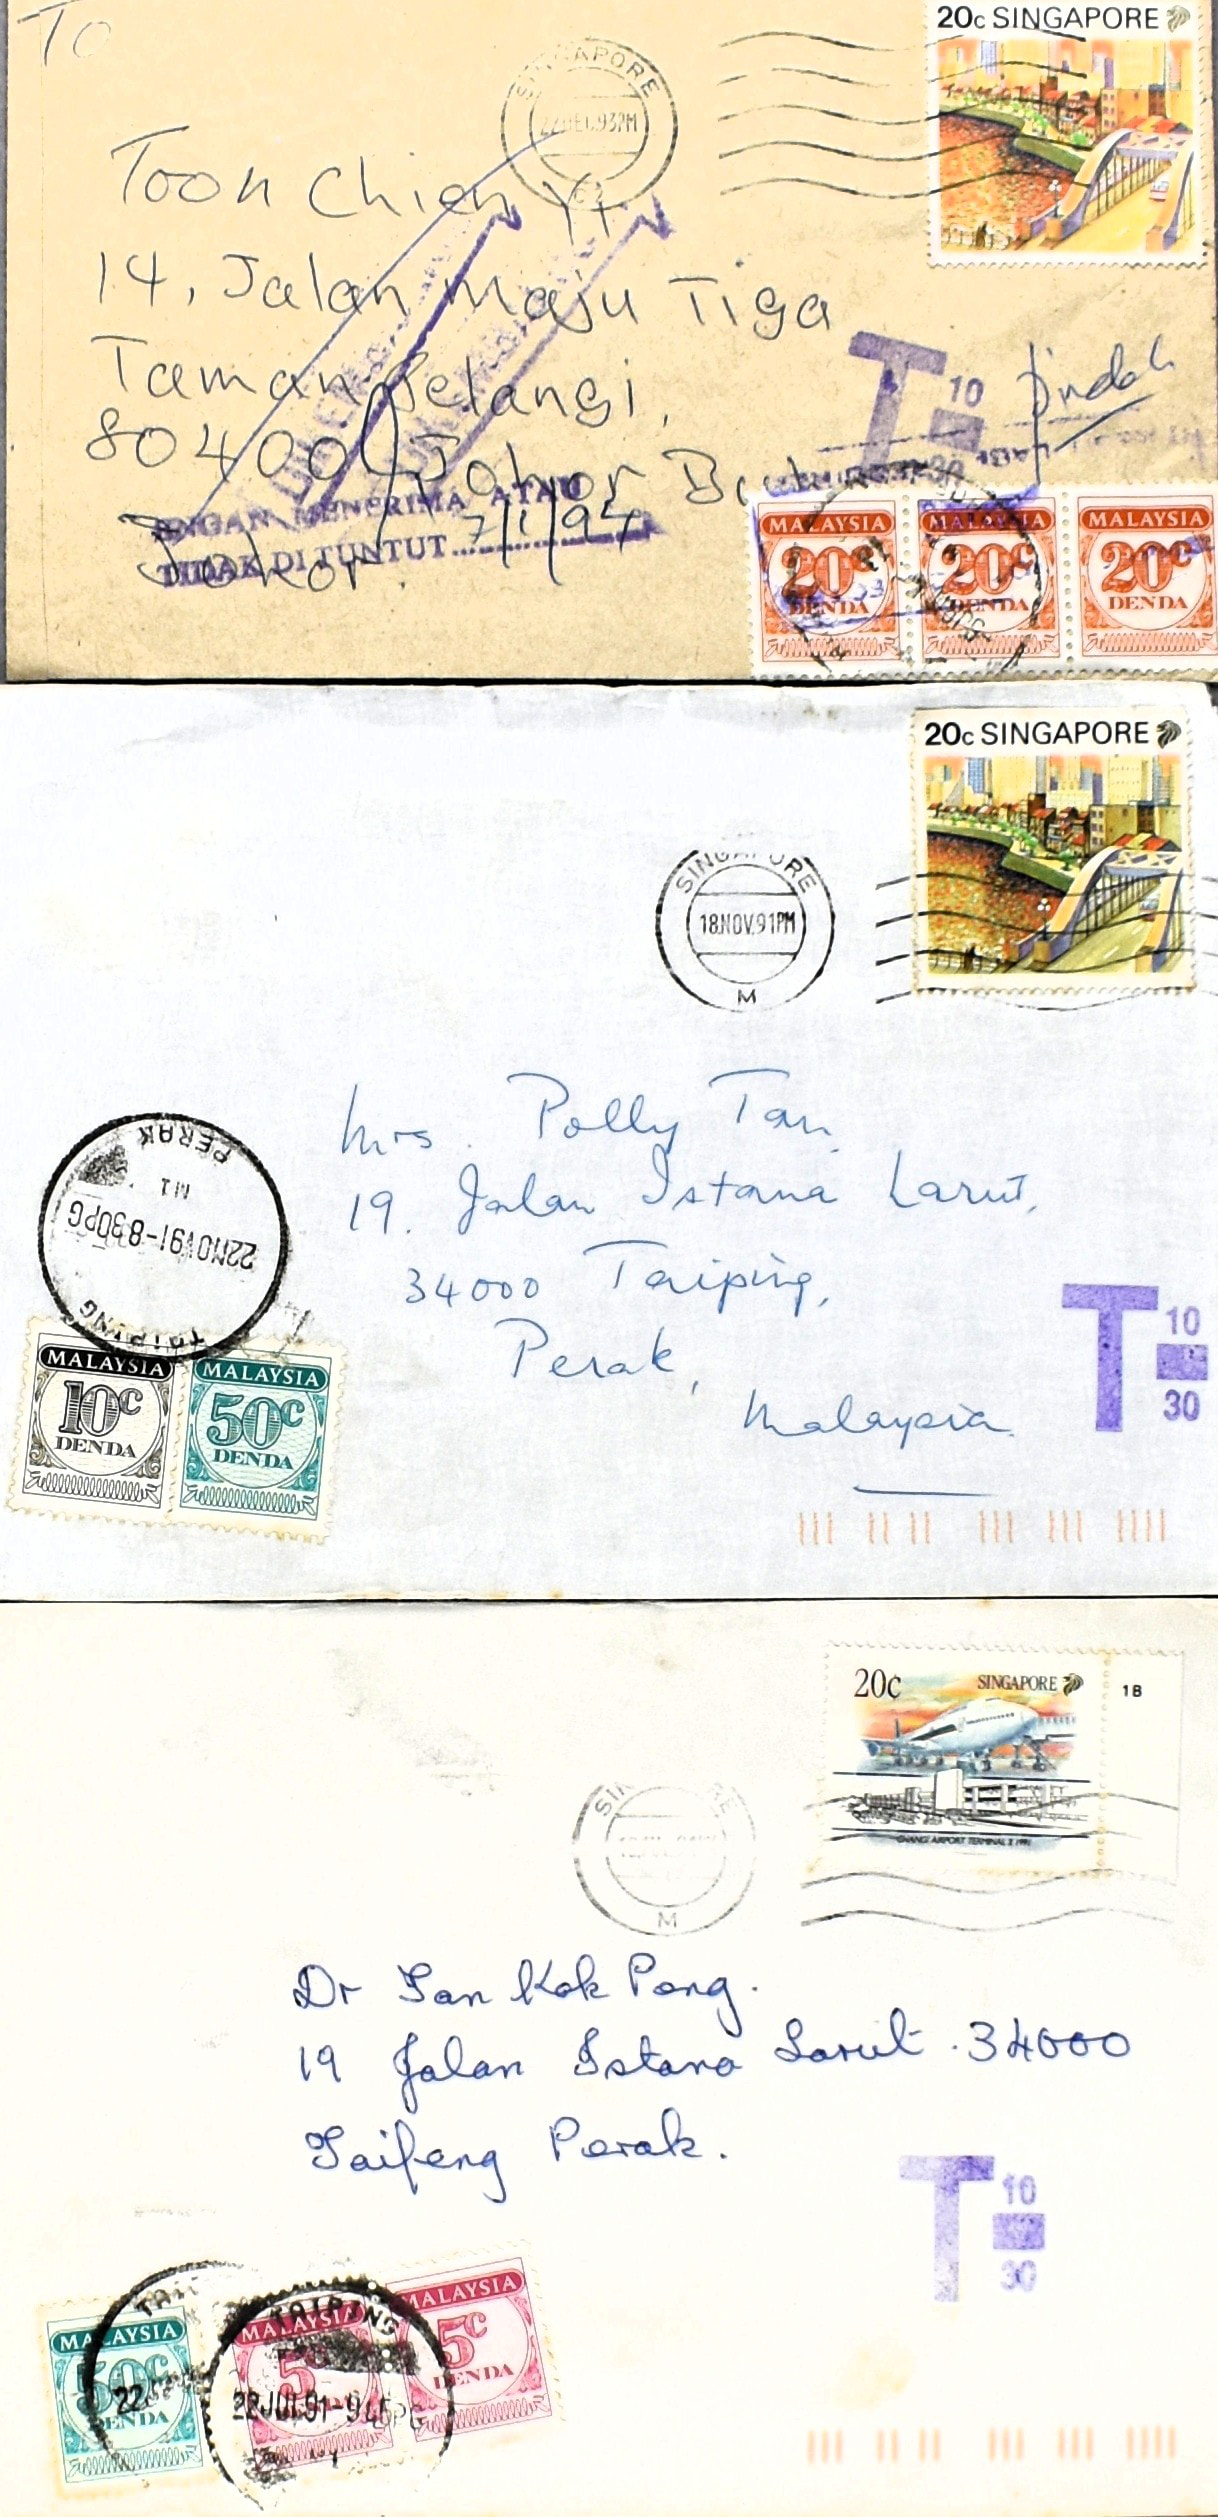 TO
20c SINGAPORE
SINGAPORE
Toon Chien Yi
14, Jalan Maju Tiga
Taman Pelangi,
80400 Johor
Johor.
ENGGAN MENERIMA ATAU
TIDAK DI TUNTUT 7/1/94
T 10
Pindah
MALAYSIA MALAYSIA MALAYSIA
20c 20c 20c
DENDA DENDA DENDA
20c SINGAPORE
SINGAPORE
18NOV.91PM
M
Mrs. Polly Tan
19. Jalan Istana Larut,
34000 Taiping,
Perak,
Malaysia
PERAK
M1
22NOV91-830PG
TAIPING
MALAYSIA MALAYSIA
10c 50c
DENDA DENDA
T 10
30
20c SINGAPORE
1B
CHANGI AIRPORT TERMINAL II 1991
M
Dr Tan Kok Pong.
19 Jalan Istana Larut. 34000
Taifeng Perak.
T 10
30
TAIPING
MALAYSIA MALAYSIA MALAYSIA
50c 5c 5c
DENDA DENDA